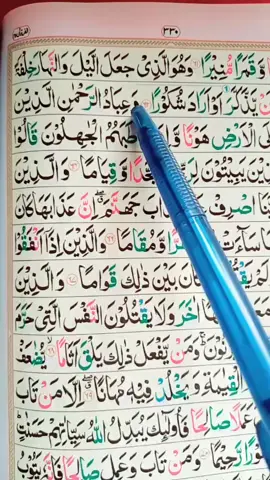 ٣٣٠
وَّ قَمَرًا مُّنِيْرًا ﴿٦١﴾ وَهُوَ الَّذِيْ جَعَلَ الَّيْلَ وَ النَّهَارَ خِلْفَةً
يَّذَّكَّرَ اَوْ اَرَادَ شُكُوْرًا ﴿٦٢﴾ وَعِبَادُ الرَّحْمٰنِ الَّذِيْنَ
الْاَرْضِ هَوْنًا وَّ الْجٰهِلُوْنَ قَالُوْا
يَبِيْتُوْنَ وَّ قِيَامًا ﴿٦٤﴾ وَ الَّذِيْنَ
اصْرِفْ جَهَنَّمَ اِنَّ عَذَابَهَا كَانَ
سَآءَتْ وَّ مُقَامًا ﴿٦٦﴾ وَالَّذِيْنَ اِذَا اَنْفَقُوْا
كَانَ بَيْنَ ذٰلِكَ قَوَامًا ﴿٦٧﴾ وَ الَّذِيْنَ
اٰخَرَ وَلَا يَقْتُلُوْنَ النَّفْسَ الَّتِيْ حَرَّمَ
وَ مَنْ يَّفْعَلْ ذٰلِكَ يَلْقَ اَثَامًا ﴿٦٨﴾ يُّضٰعَفْ
الْقِيٰمَةِ وَ يَخْلُدْ فِيْهٖ مُهَانًا ﴿٦٩﴾ اِلَّا مَنْ تَابَ
صَالِحًا فَاُولٰٓئِكَ يُبَدِّلُ اللّٰهُ سَيِّاٰتِهِمْ حَسَنٰتٍ
رَّحِيْمًا ﴿٧٠﴾ وَ مَنْ تَابَ وَ عَمِلَ صَالِحًا فَاِنَّهٗ يَتُوْبُ